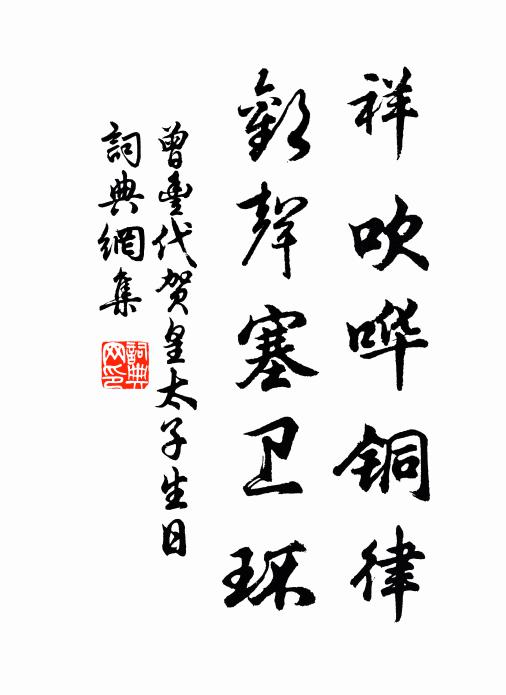 祥吹哗铜律
歡聲塞卫环
曾豐代贺皇太子生日
詞典網集
詞典网印